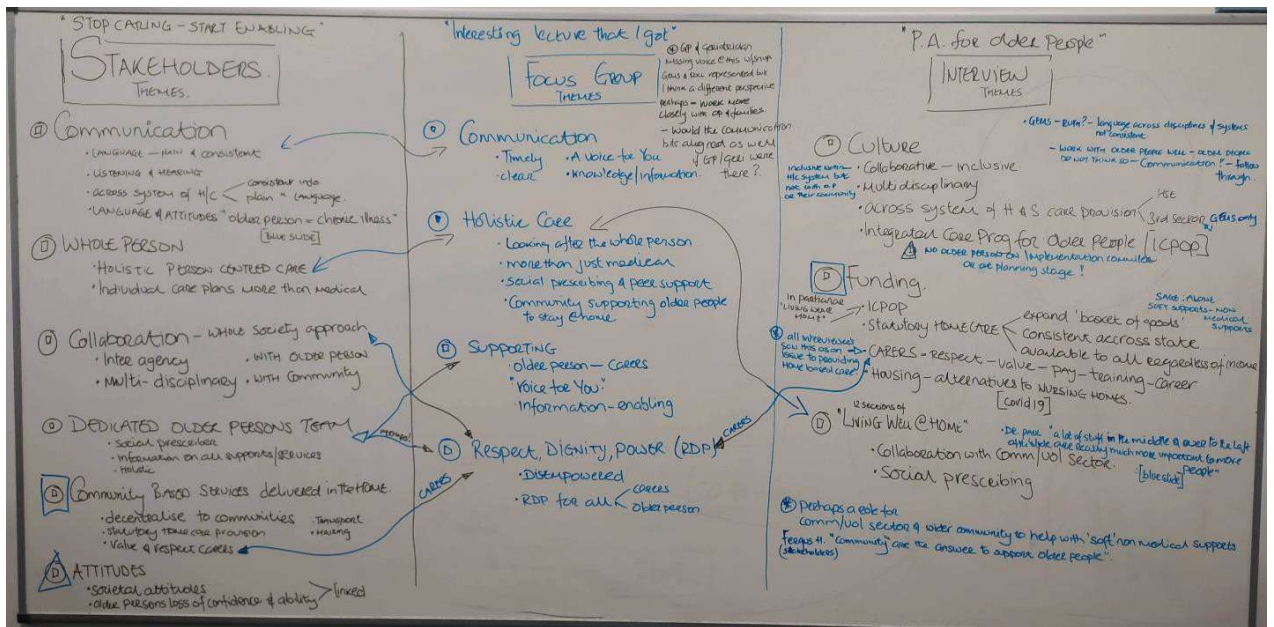 "STOP CARING - START ENABLING"
STAKEHOLDERS.
THEMES.
Communication
• LANGUAGE - PLAIN & consistent
• LISTENING & HEARING
• across system of H/C < consistent info
plain " language.
• LANGUAGE & ATTITUDES "older person = chronic illness"
[BLUE SLIDE]
WHOLE PERSON
• HOLISTIC PERSON CENTRED CARE
• Individual care plans more than medical
Collaboration - WHOLE SOCIETY approach
• Inter agency
• WITH OLDER PERSON
• Multi-disciplinary
• WITH Community
DEDICATED OLDER PERSONS TEAM
• social prescriber
• Information on all supports/services
• Holistic
Community BASED Services delivered in the HOME.
• decentralise to communities
• Transport
• statutory Home care provision
• Housing
• Value & respect CARERS
ATTITUDES
• Societal attitudes
• older persons loss of confidence & ability > linked
"Interesting lecture that I got"
FOCUS GROUP
THEMES
GP & geriatrician
Missing voice @ this
represented but
I think a different perspective
perhaps - WORK MORE
closely with OP & families
- would the communication
bits aligned as well
if GP/Geri were
there?
Communication
• Timely
clear
• A voice for You
• knowledge/information.
Holistic Care
• Looking after the whole person
• more than just medical
• Social prescribing & peer support
• Community supporting older people
to stay @ home
SUPPORTING
• older person - CARERS
• "Voice for You"
• Information - enabling
CARERS
CARERS
Respect, DIGNITY, POWER (RDP)
• Disempowered
• RDP for all < carers
older person
"P.A. for older People"
INTERVIEW
THEMES
- language across disciplines & systems
not consistent
- WORK WITH OLDER PEOPLE WELL - OLDER PEOPLE
DO NOT THINK SO - Communication? - follow
through.
Culture
inclusive within
H/C system but
not with O.P
or their community
• Collaborative - inclusive
• Multi disciplinary
• across system of H & S care provision < HSE
3rd sector
• Integrated Care Prog for older People [ICPOP]
NO OLDER PERSON ON Implementation committee
or at planning stage!
Funding.
In particular
"LIVING WELL @
HOME"
• ICPOP
• Statutory HOME CARE < expand 'basket of goods'
consistent accross state
available to all regardless of income
SAGE: ALONE
SOFT SUPPORTS - NON
Medical
supports
all interviewees
saw this as an
issue to providing
Home based care
• CARERS - Respect - value - pay - training - career
• Housing - alternatives to NURSING HOMES.
[Covid 19]
12 sections of
"LIVING WELL @ HOME"
• "a lot of stuff in the middle & over to the left
of the slide are really much more important to more
people"
[blue slide]
• Collaboration with Comm/Vol SECTOR.
• Social prescribing
perhaps a role for
comm/vol sector & wider community to help with 'soft' non medical supports
Fergus H. "Community are the answer to support older people".
(stakeholders)